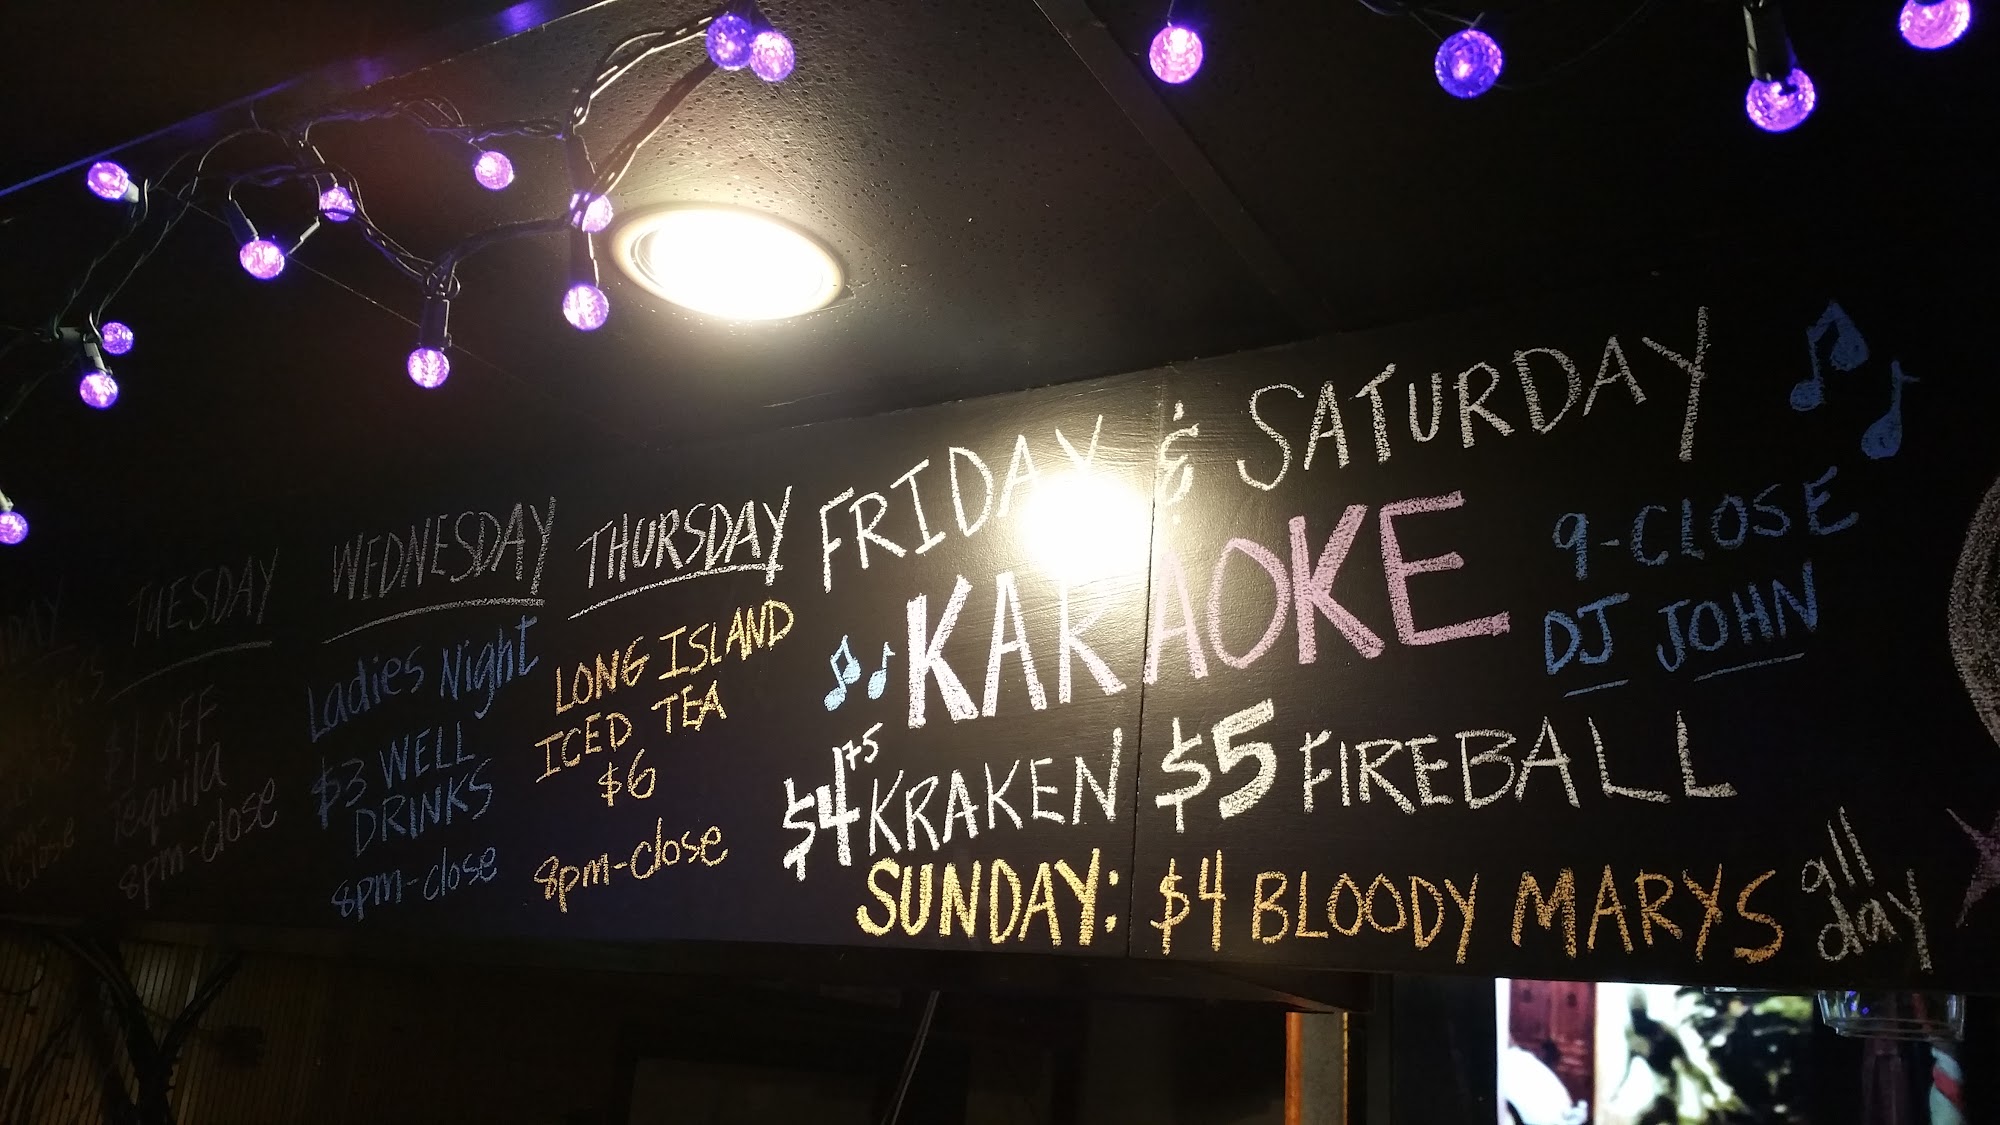 TUESDAY
$1 OFF
Tequila
8pm-close
WEDNESDAY
Ladies Night
$3 WELL
DRINKS
8pm-close
THURSDAY
LONG ISLAND
ICED TEA
$6
8pm-close
FRIDAY & SATURDAY
KARAOKE
9-CLOSE
DJ JOHN
$4.75 KRAKEN $5 FIREBALL
SUNDAY: $4 BLOODY MARYS all day